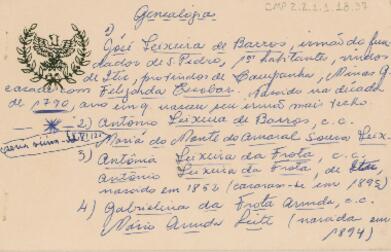 CMP 2.2.1.1.18.37
Genealogias
1)
José Teixeira de Barros, irmão do fun
dador de S. Pedro, 1º habitante, vindos
de Itú, provindos de Campanha, Minas G.
casado com Felizarda Escobar. Nascido na década
de 1790, ano em q nasceu seu irmão mais velho.
2) Antônio Teixeira de Barros, c.c.
Maria do Monte do Amaral Souza Teix.
3) Antônia Teixeira da Frota, c.c.
Antônio Teixeira da Frota, de
nascido em 1852 (casaram-se em 1895)
4) Gabrielina da Frota Arruda, c.c.
Mário Arruda Leite (nascida em
1894)